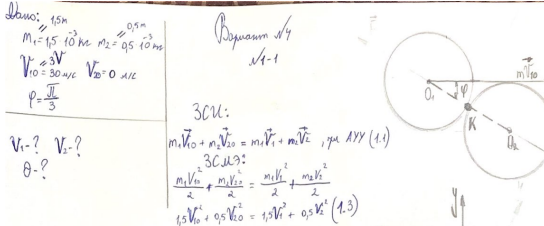 Дано:
1,5m 0,5m
m₁=1,5·10⁻³ кг m₂=0,5·10⁻³ кг
3V
V₁₀=30 м/с V₂₀=0 м/с
φ=π/3
V₁-? V₂-?
θ-?
Вариант №4
№1-1
ЗСИ:
m₁V⃗₁₀+m₂V⃗₂₀=m₁V⃗₁+m₂V⃗₂, при АУУ (1.1)
ЗСМЭ:
m₁V₁₀²/2+m₂V₂₀²/2=m₁V₁²/2+m₂V₂²/2
1,5V₁₀²+0,5V₂₀²=1,5V₁²+0,5V₂² (1.3)
mV⃗₁₀
O₁ φ
K
O₂
y